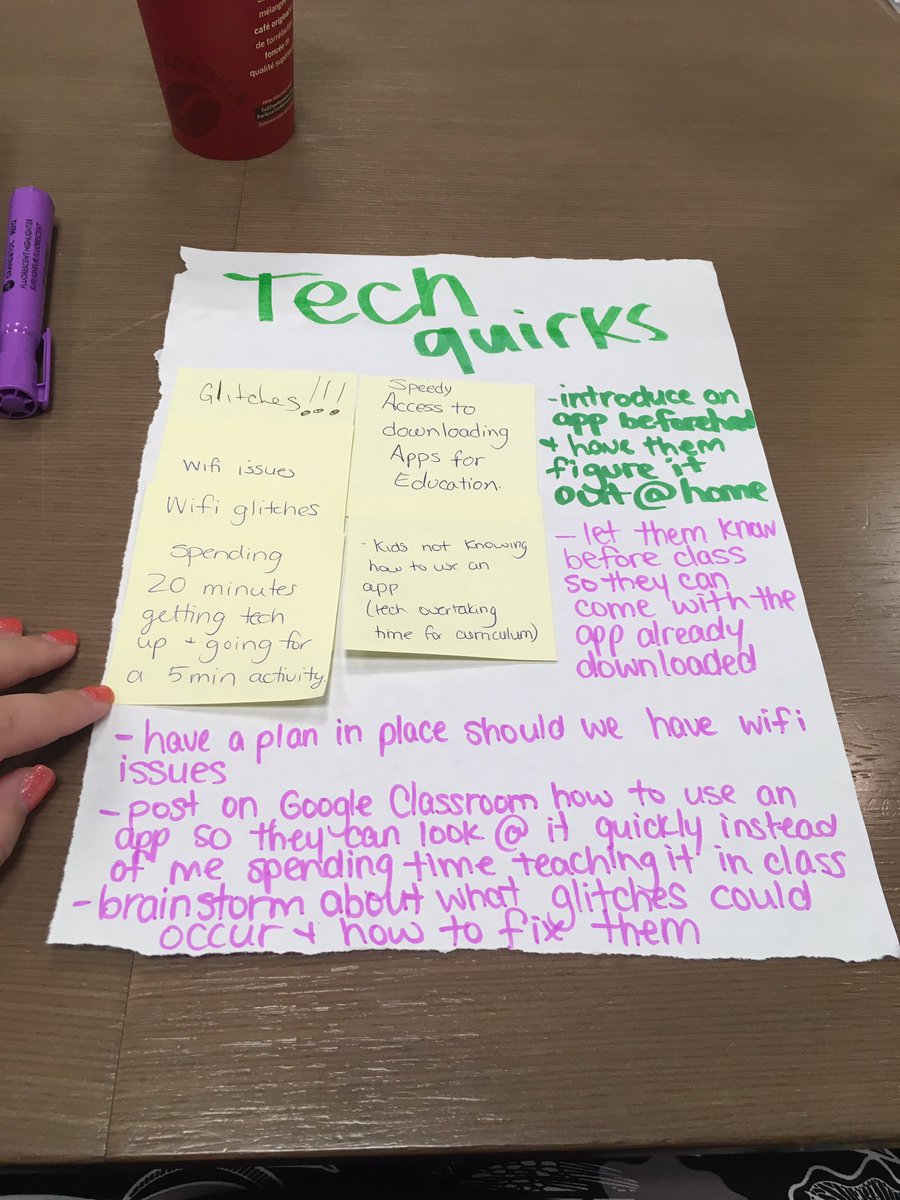 mélanges
café original
de torréfaction
foncée de
qualité supérieure
ARABICA
FLUORESCENT HIGHLIGHTER
SURLIGNEUR FLUORESCENT
Tech
quirks
Glitches!!!
Wifi issues
Wifi glitches
Spending
20 minutes
getting tech
up + going for
a 5 min activity.
Speedy
Access to
downloading
Apps for
Education.
- Kids not knowing
how to use an
app
(tech overtaking
time for curriculum)
- introduce an
app beforehand
+ have them
figure it
out @ home
- let them know
before class
so they can
come with the
app already
downloaded
- have a plan in place should we have wifi
issues
- post on Google Classroom how to use an
app so they can look @ it quickly instead
of me spending time teaching it in class
- brainstorm about what glitches could
occur + how to fix them